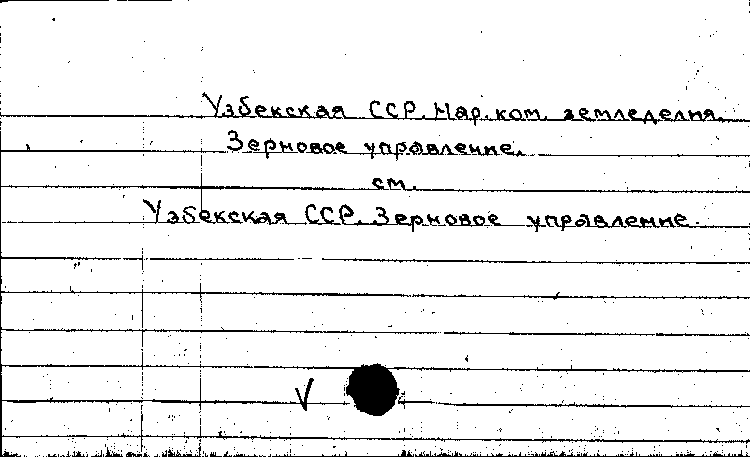 Узбекская ССР. Нар. ком. земледелия.
Зерновое управление.
см.
Узбекская ССР. Зерновое управление.